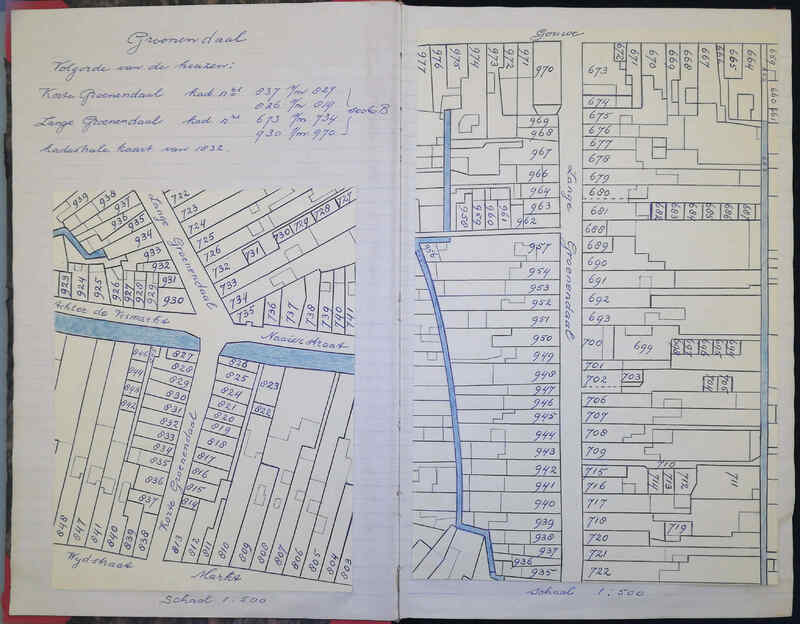 Groenendaal
Volgorde van de huizen:
Korte Groenendaal kad. nrs 837 t/m 827
826 t/m 819
Lange Groenendaal kad. nrs 673 t/m 734
930 t/m 970
sectie B
kadastrale kaart van 1832.
Lange Groenendaal
939 938 937 936 935 934 933 932 931 930
923 924 925 926 927 928 929
722 723 724 725 726 732 733 734 735
731 730 729 728 727
736 737 738 739 740 741
Achter de Vismarkt
Naaierstraat
827 828 829 830 831 832 833 834 835 836 837
826 825 824 821 820 819 818 817 816 815 814
823 822
Korte Groenendaal
848 847 841 840 839 838
813 812 811 810 809 808 807 806 805 804 803
Wijdstraat
Markt
Schaal 1:500
Gouwe
977 976 975 974 973 972 971 970
969
968
967
966
964
963
962
958 959 960 961
957
954
953
952
951
950
949
948
947
946
945
944
943
942
941
940
939
938
937
936
935
Lange Groenendaal
673 672 671 670 669 668 667 666 665 664
674
675
676
677
678
679
680
681 682 683 684 685 686 687
688
689
690
691
692
693
700 699 698 697 696 695 694
701
702 703 704 705
706
707
708
709
710
715 714 713 712 711
716
717
718
719
720
721
722
Schaal 1:500